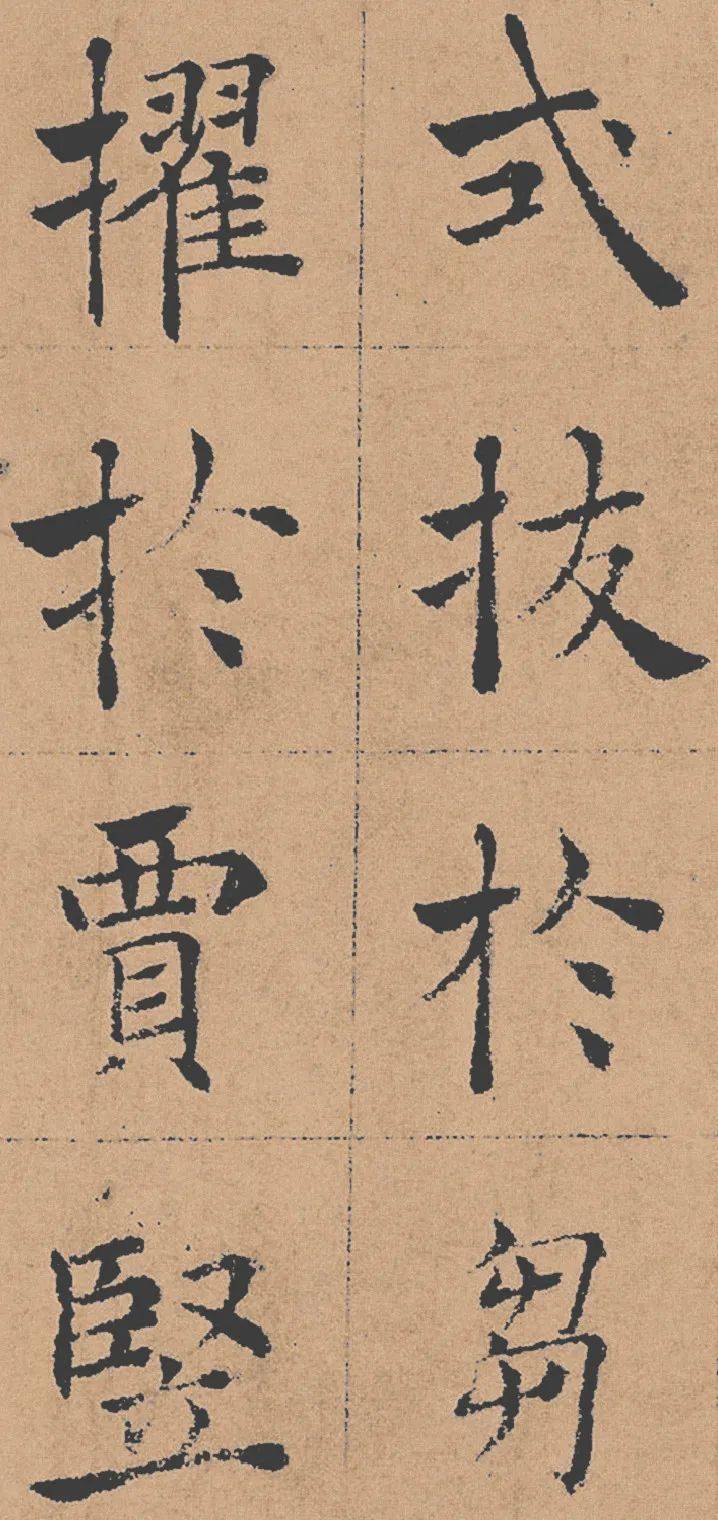 式拔於芻
擢於賈竪